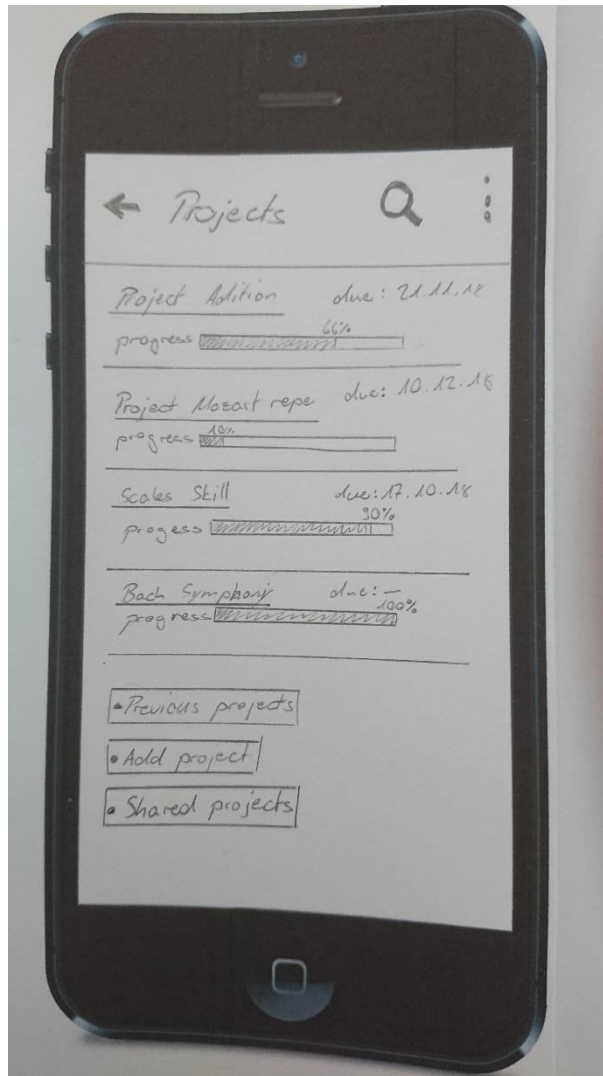 Projects
Project Adition due: 21.11.18
66%
progress
Project Mozart repe due: 10.12.18
10%
progress
Scales Skill due: 17.10.18
90%
progess
Bach Symphony due: –
100%
progress
• Previous projects
• Add project
• Shared projects